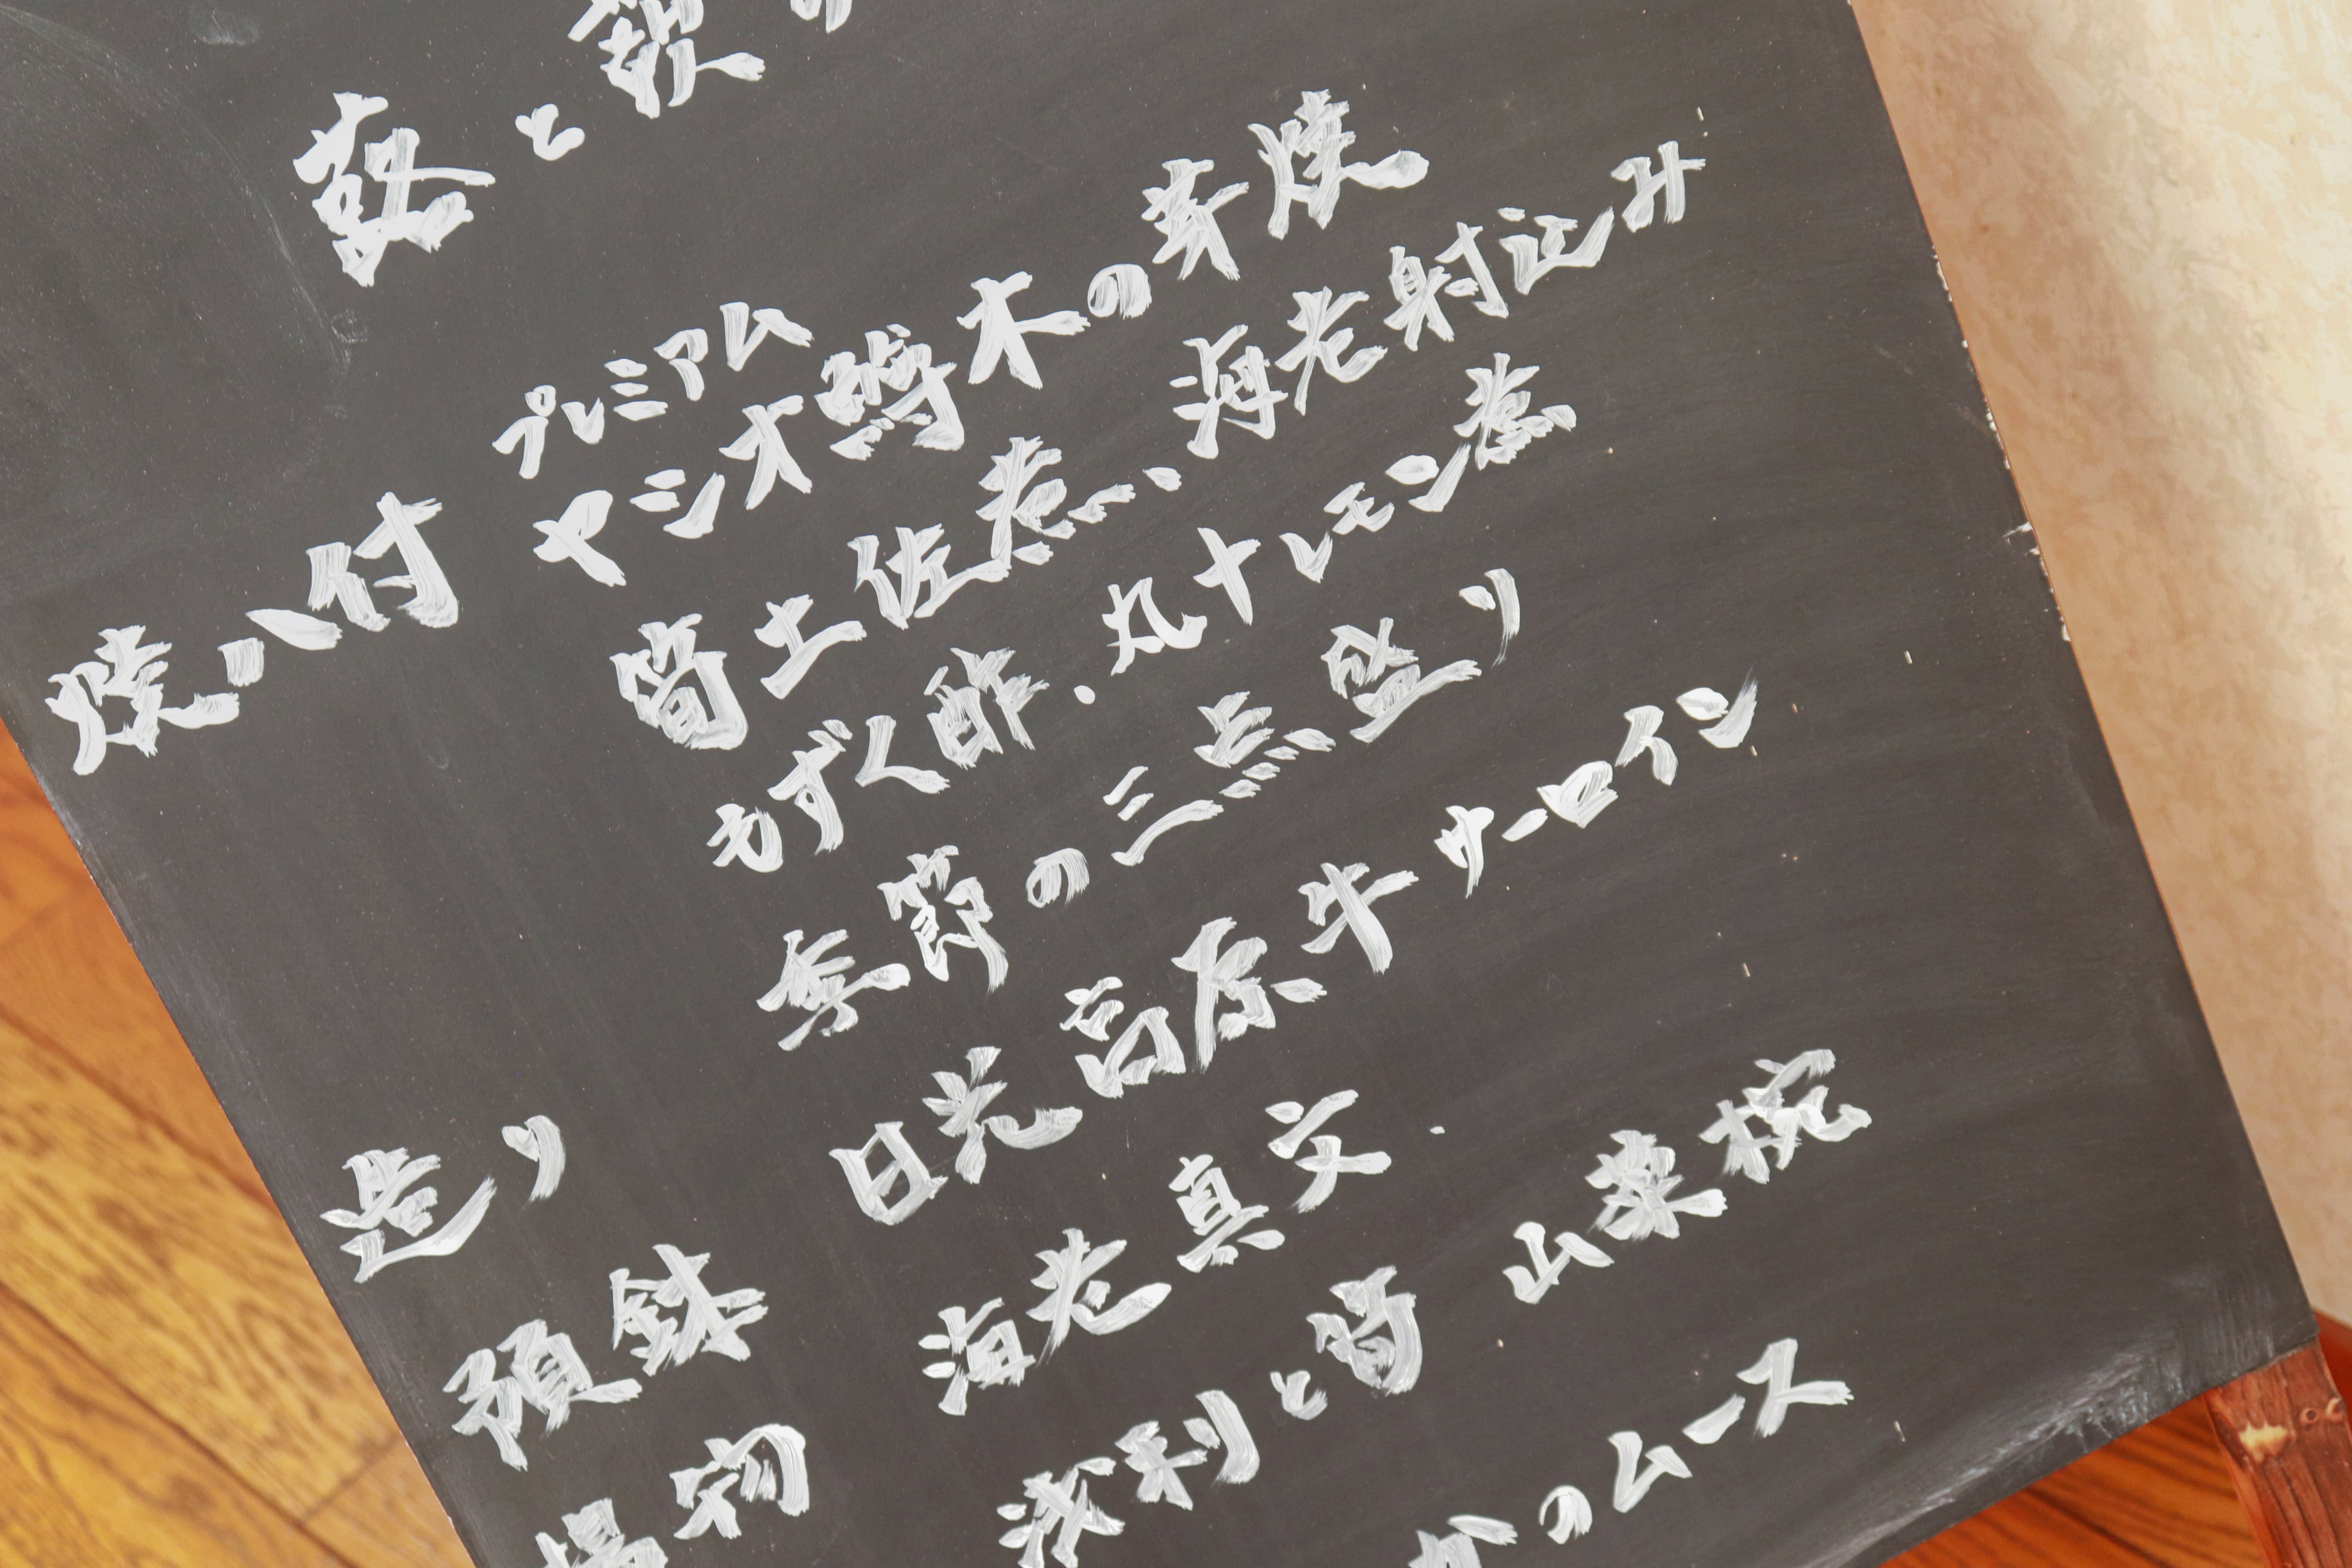 と
焼八付 プレミアム
ヤシオ鱒木の芽焼
筍土佐煮、海老射込み
もずく酢・丸十レモン煮
造り 季節の三点盛り
預鉢 日光高原牛サーロイン
揚物 海老真丈
浅利と筍 山菜椀
のムース